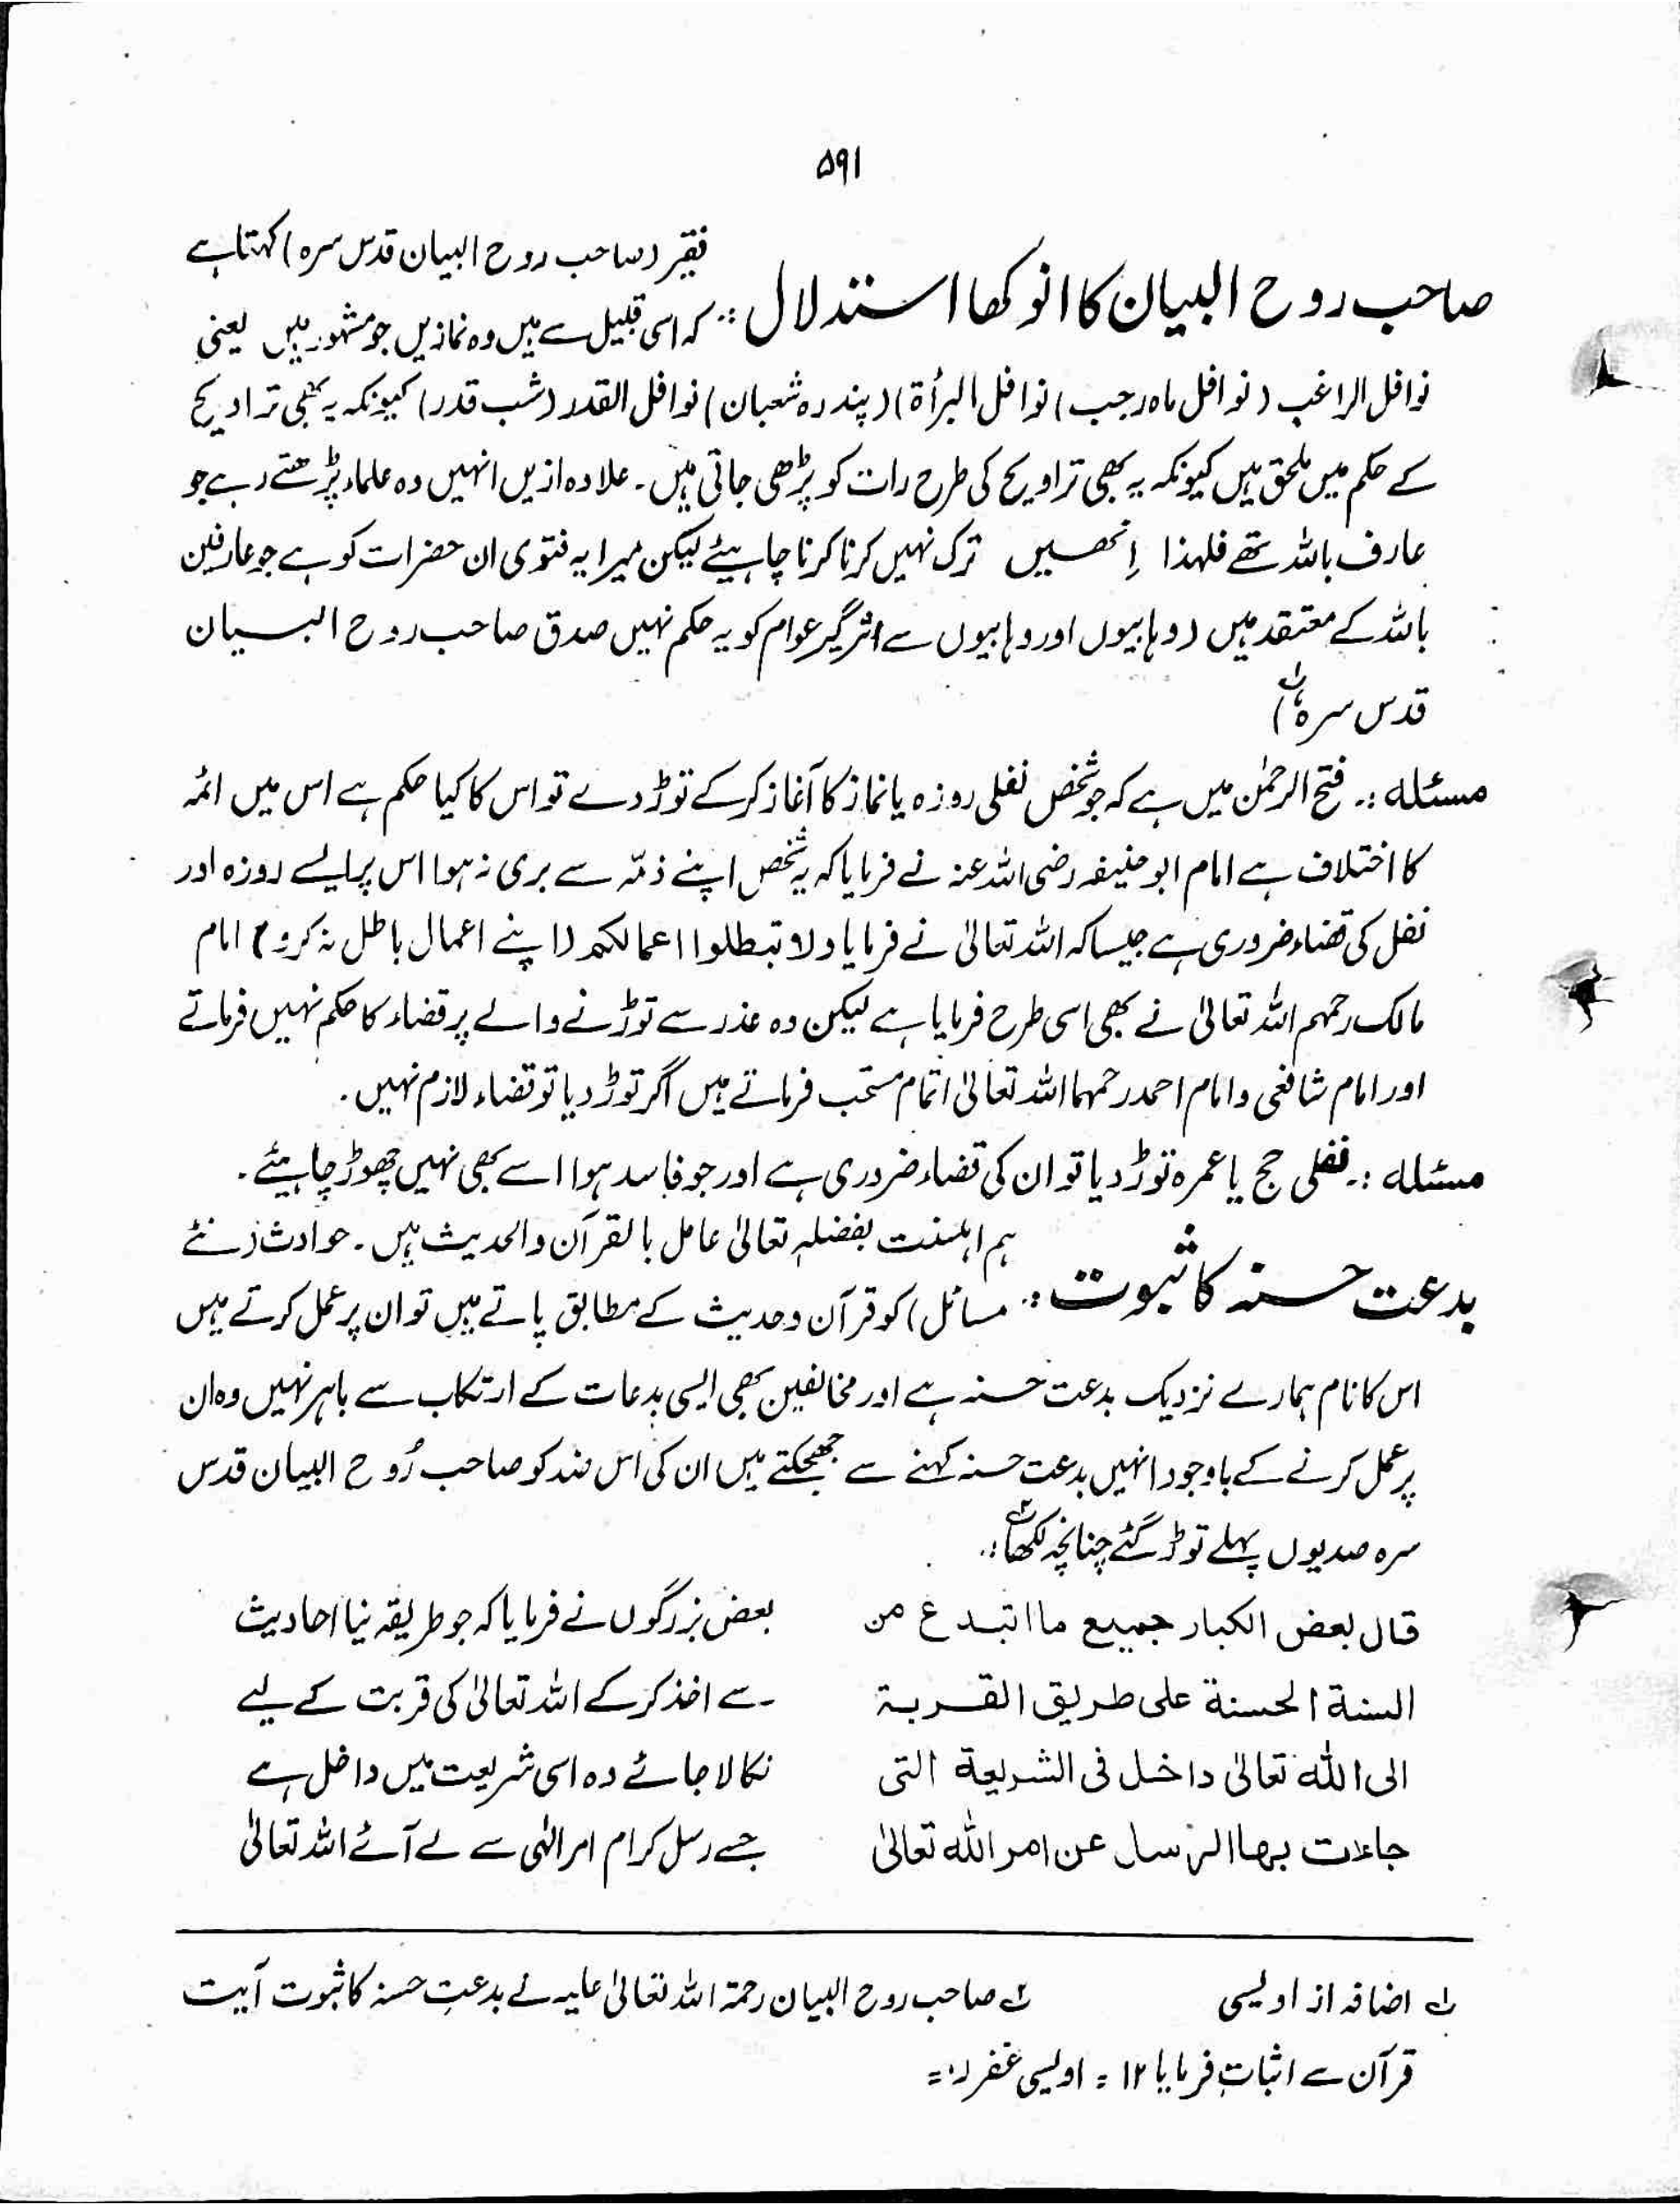 ۵۹۱
صاحب روح البیان کا انوکھا استدلال :۔ فقیر (صاحب روح البیان قدس سرہ) کہتا ہے
کہ اسی قبیل سے ہیں وہ نمازیں جو مشہور ہیں یعنی
نوافل الراغب (نوافل ماہ رجب) نوافل البرأۃ) (پندرہ شعبان) نوافل القدر (شب قدر) کیونکہ یہ بھی تراویح
کے حکم میں ملحق ہیں کیونکہ یہ بھی تراویح کی طرح رات کو پڑھی جاتی ہیں۔ علاوہ ازیں انہیں وہ علماء پڑھتے رہے جو
عارف باللہ تھے فلہذا اِنھیں ترک نہیں کرنا کرنا چاہیئے لیکن میرا یہ فتوی ان حضرات کو ہے جو عارفین
باللہ کے معتقد ہیں (وہابیوں اور وہابیوں سے اثر گیر عوام کو یہ حکم نہیں صدق صاحب روح البیان
قدس سرہ ۱؎)
مسئلہ :۔ فتح الرحمٰن میں ہے کہ جو شخص نفلی روزہ یا نماز کا آغاز کرکے توڑ دے تو اس کا کیا حکم ہے اس میں ائمہ
کا اختلاف ہے امام ابو حنیفہ رضی اللہ عنہ نے فرمایا کہ یہ شخص اپنے ذمّہ سے بری نہ ہوا اس پر ایسے روزہ اور
نفل کی قضاء ضروری ہے جیسا کہ اللہ تعالیٰ نے فرمایا ولا تبطلوا اعمالکم (اپنے اعمال باطل نہ کرو) امام
مالک رحمہم اللہ تعالیٰ نے بھی اسی طرح فرمایا ہے لیکن وہ عذر سے توڑنے والے پر قضاء کا حکم نہیں فرماتے
اور امام شافعی و امام احمد رحمہما اللہ تعالیٰ اتمام مستحب فرماتے ہیں اگر توڑ دیا تو قضاء لازم نہیں۔
مسئلہ :۔ نفلی حج یا عمرہ توڑ دیا تو ان کی قضاء ضروری ہے اور جو فاسد ہوا اسے بھی نہیں چھوڑ چاہیئے۔
بدعت حسنہ کا ثبوت :۔ ہم اہلسنت بفضلہٖ تعالیٰ عامل بالقرآن والحدیث ہیں۔ حوادث (نئے
مسائل) کو قرآن و حدیث کے مطابق پاتے ہیں تو ان پر عمل کرتے ہیں
اس کا نام ہمارے نزدیک بدعت حسنہ ہے اور مخالفین بھی ایسی بدعات کے ارتکاب سے باہر نہیں وہ ان
پر عمل کرنے کے باوجود انہیں بدعت حسنہ کہنے سے جھجکتے ہیں ان کی اس ضد کو صاحب رُوح البیان قدس
سرہ صدیوں پہلے توڑ گئے چنانچہ لکھا ۲؎ :۔
قال بعض الکبار جمیع ما ابتدع من
السنۃ الحسنۃ علی طریق القربۃ
الی اللہ تعالیٰ داخل فی الشریعۃ التی
جاءت بھا الرسل عن امر اللہ تعالیٰ
بعض بزرگوں نے فرمایا کہ جو طریقہ نیا احادیث
سے اخذ کرکے اللہ تعالیٰ کی قربت کے لیے
نکالا جائے وہ اسی شریعت میں داخل ہے
جسے رسل کرام امر الٰہی سے لے آئے اللہ تعالیٰ
۱؎ اضافہ از اویسی
۲؎ صاحب روح البیان رحمۃ اللہ تعالیٰ علیہ نے بدعتِ حسنہ کا ثبوت آیت
قرآن سے اثبات فرمایا ۱۲ = اویسی غفرلہ =